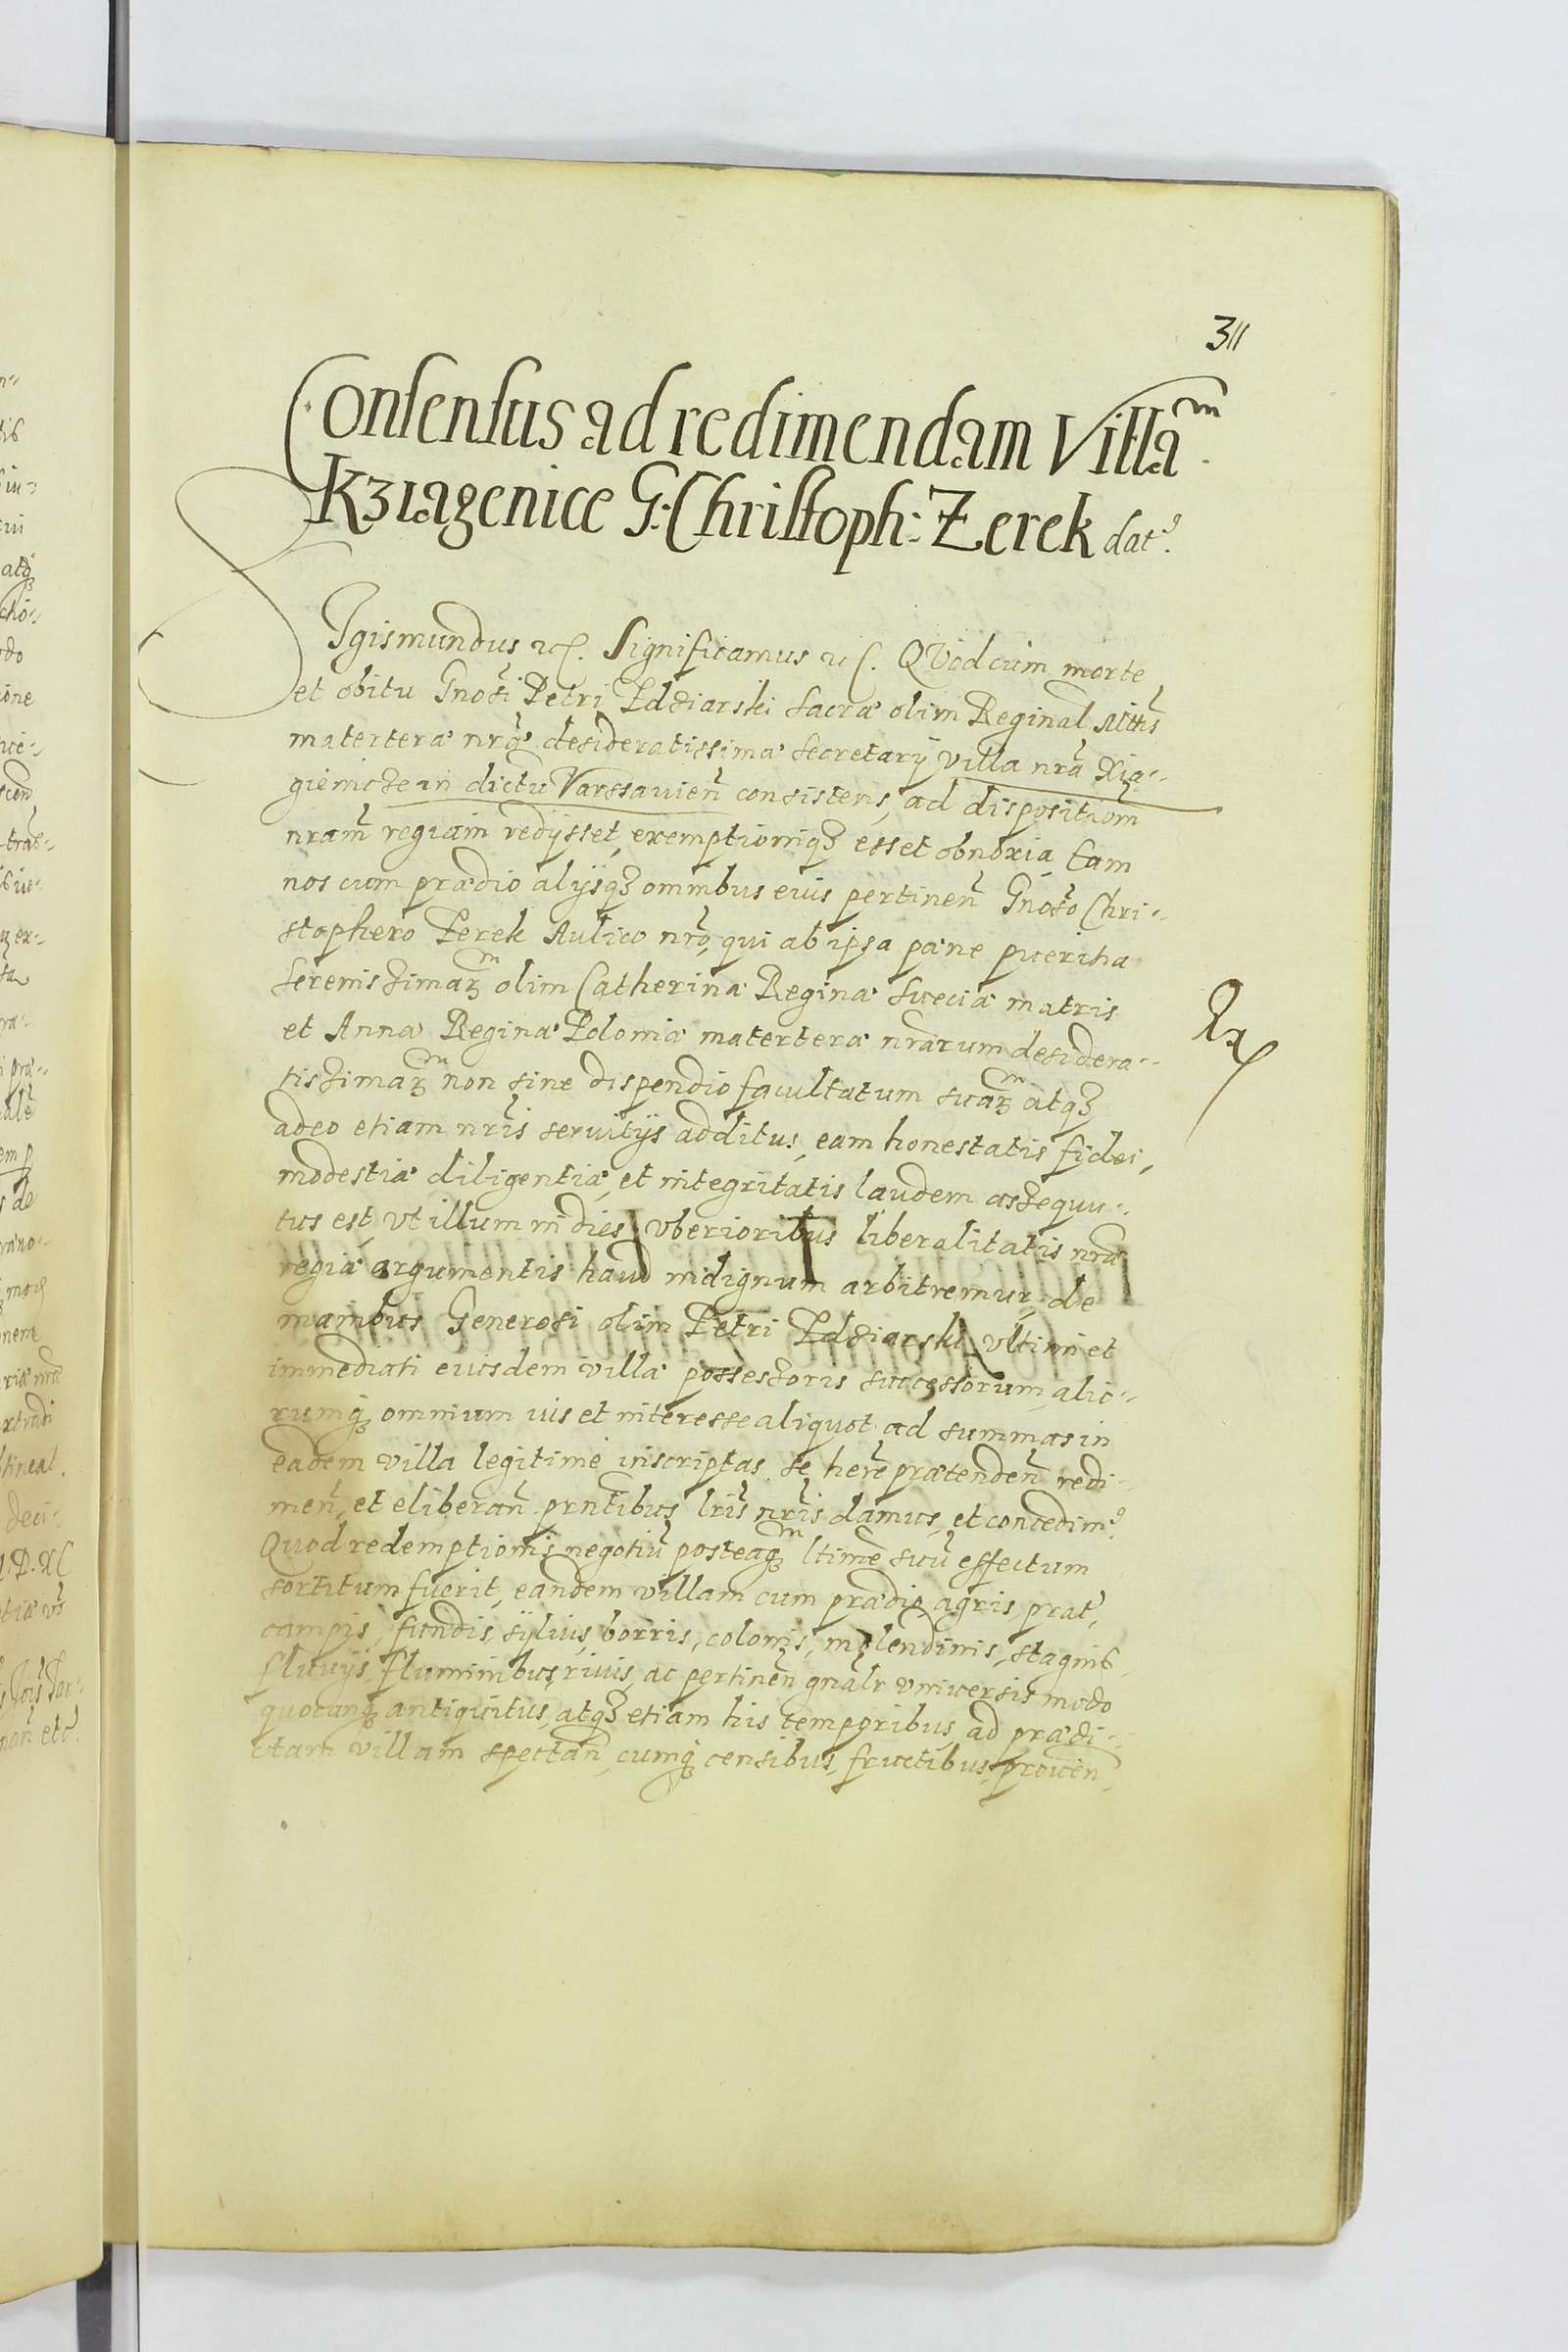 311
Consensus ad redimendam Villam
Kziagenice G: Christoph: Zerek dat9.
Sigismundus etc. Significamus etc. QVod cum morte
et obitu Gnosi Petri Zdziarski sacræ olim Reginal Mttis
materteræ nræ desideratissimæ secretarij villa nra Xia-
gienicze in dictu Varssavien consistens, ad disposition
nram regiam redysset, exemptioniqз esset obnoxia, Eam
nos cum prædio alijsqз omnibus eius pertinen Gnoso Chri-
stophero Zerek Aulico nro, qui ab ipsa pæne pueritia
serenissimarum olim Catherinæ Reginæ Sueciæ matris
et Annæ Reginæ Poloniæ materteræ nrarum desidera-
tissimarum non sine dispendio facultatum suarum atqз
adeo etiam nris servitijs additus, eam honestatis fidei,
modestiæ diligentiæ, et integritatis laudem assequu-
tus est, vt illum in dies vberioribus liberalitatis nræ
regiæ argumentis haud indignum arbitremur, de
manibus Generosi olim Petri Zdziarski vltimi et
immediati eiusdem villæ possessoris successorum, alio-
rumqз omnium ius et interesse aliquot ad summas in
eadem villa legitime inscriptas se here prætenden redi-
men, et eliberan prntibus lris nris damus, et concedim9.
Quod redemptionis negotiu posteaqзm ltime suu effectum
sortitum fuerit, eandem villam cum prædio agris, prat,
campis, fundis, sylvis, borris, colonis, molendinis, stagnis
fluvijs, fluminibus, rivis, ac pertinen gnalr vniversis modo
quocunqз antiquitus, atqз etiam his temporibus ad prædi-
ctam villam spectan, cumqз censibus, fructibus, proven-